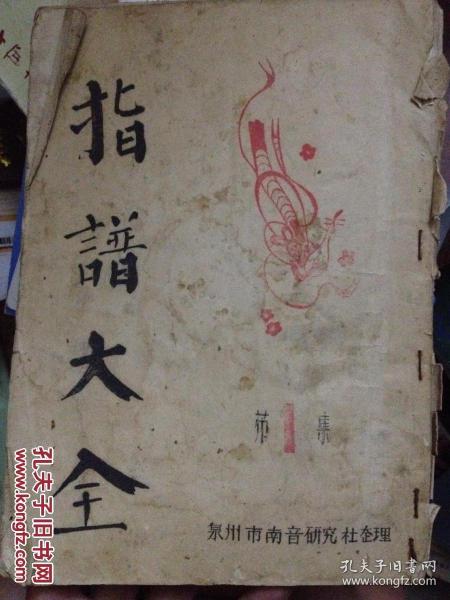 指譜大全
第1集
泉州市南音研究社整理
孔夫子旧书网
孔夫子旧书网
www.kongfz.com